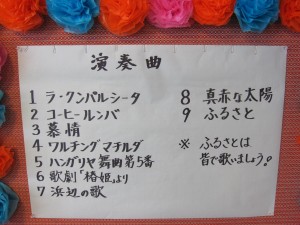 演奏曲
1 ラ・クンパルシータ
2 コーヒールンバ
3 慕情
4 ワルチングマチルダ
5 ハンガリヤ舞曲第5番
6 歌劇「椿姫」より
7 浜辺の歌
8 真赤な太陽
9 ふるさと
※ ふるさとは
皆で歌いましょう。